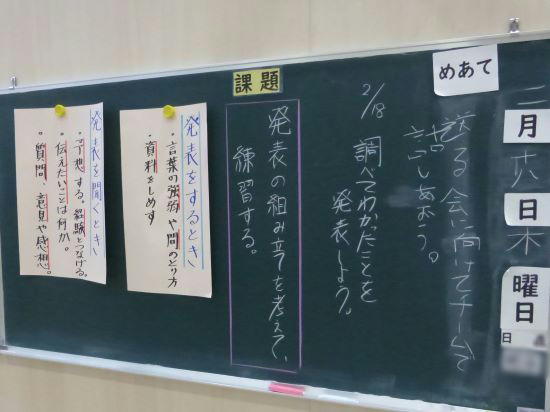 二月十八日木曜日
日
めあて
送る会に向けてチームで
話しあおう。
2/18 調べてわかったことを
発表しよう。
課題
発表の組み立てを考えて、
練習する。
発表をするとき
・言葉の強弱や間のとり方
・資料をしめす
発表を聞くとき
・予想する。経験とつなげる。
・伝えたいことは何か。
・質問、意見や感想。